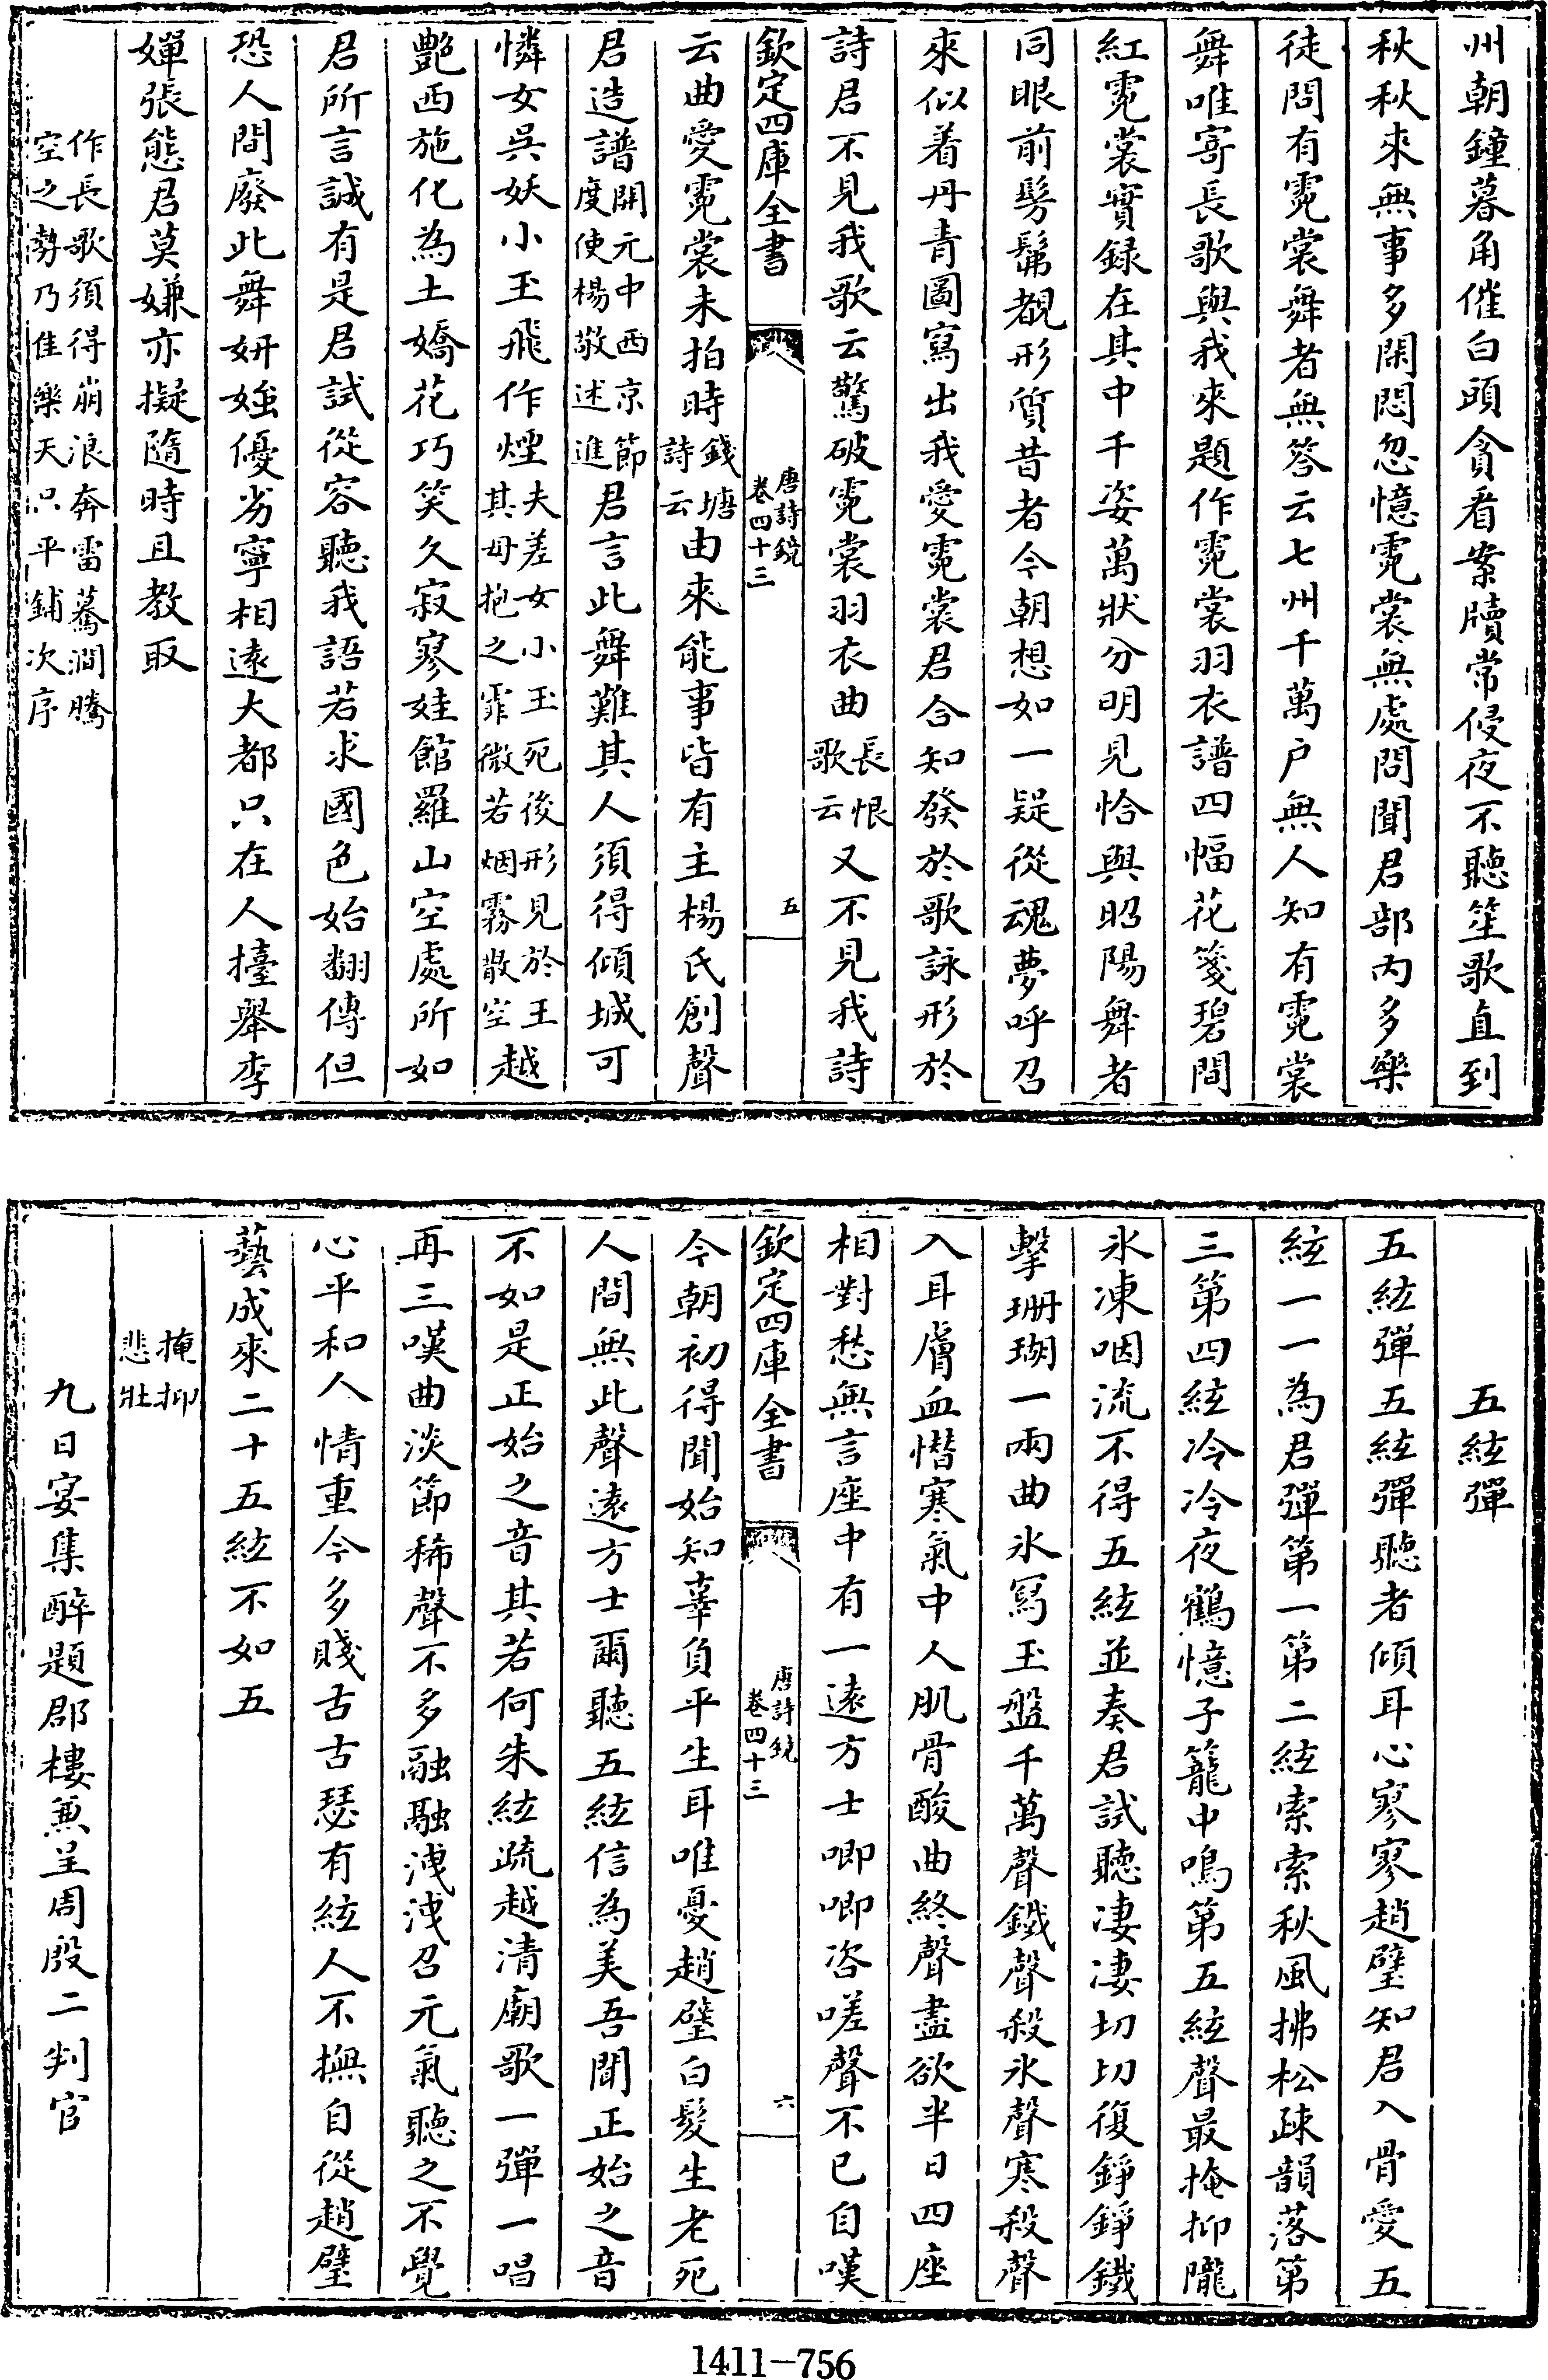 州朝鐘暮角催白頭貪看案牘常侵夜不聽笙歌直到
秋秋來無事多閑悶忽憶霓裳無處問聞君部內多樂
徒問有霓裳舞者無答云七州千萬户無人知有霓裳
舞唯寄長歌與我來題作霓裳羽衣譜四幅花箋碧間
紅霓裳實録在其中千姿萬狀分明見恰與昭陽舞者
同眼前髣髴覩形質昔者今朝想如一疑從魂夢呼召
來似着丹青圖寫出我愛霓裳君合知發於歌詠形於
詩君不見我歌云驚破霓裳羽衣曲長恨歌云又不見我詩
欽定四庫全書 唐詩鏡 卷四十三 五
云曲愛霓裳未拍時錢塘詩云由來能事皆有主楊氏創聲
君造譜開元中西京節度使楊敬述進君言此舞難其人須得傾城可
憐女吳妖小玉飛作煙夫差女小玉死後形見於王其母抱之霏微若烟霧散空越
艷西施化為土嬌花巧笑久寂寥娃館羅山空處所如
君所言誠有是君試從容聽我語若求國色始翻傳但
恐人間廢此舞妍媸優劣寧相遠大都只在人擡舉李
嬋張態君莫嫌亦擬隨時且教取
作長歌須得崩浪奔雷驀澗騰
空之勢乃佳樂天只平鋪次序
五絃彈
五絃彈五絃彈聽者傾耳心寥寥趙璧知君入骨愛五
絃一一為君彈第一第二絃索索秋風拂松疎韻落第
三第四絃冷冷夜鶴憶子籠中鳴第五絃聲最掩抑隴
氷凍咽流不得五絃並奏君試聽凄凄切切復錚錚鐵
擊珊瑚一兩曲氷寫玉盤千萬聲鐵聲殺氷聲寒殺聲
入耳膚血憯寒氣中人肌骨酸曲終聲盡欲半日四座
相對愁無言座中有一遠方士唧唧咨嗟聲不已自嘆
欽定四庫全書 唐詩鏡 卷四十三 六
今朝初得聞始知辜負平生耳唯憂趙璧白髮生老死
人間無此聲遠方士爾聽五絃信為美吾聞正始之音
不如是正始之音其若何朱絃疏越清廟歌一彈一唱
再三嘆曲淡節稀聲不多融融洩洩召元氣聽之不覺
心平和人情重今多賤古古瑟有絃人不撫自從趙璧
藝成來二十五絃不如五
掩抑
悲壯
九日宴集醉題郡樓兼呈周殷二判官
1411-756